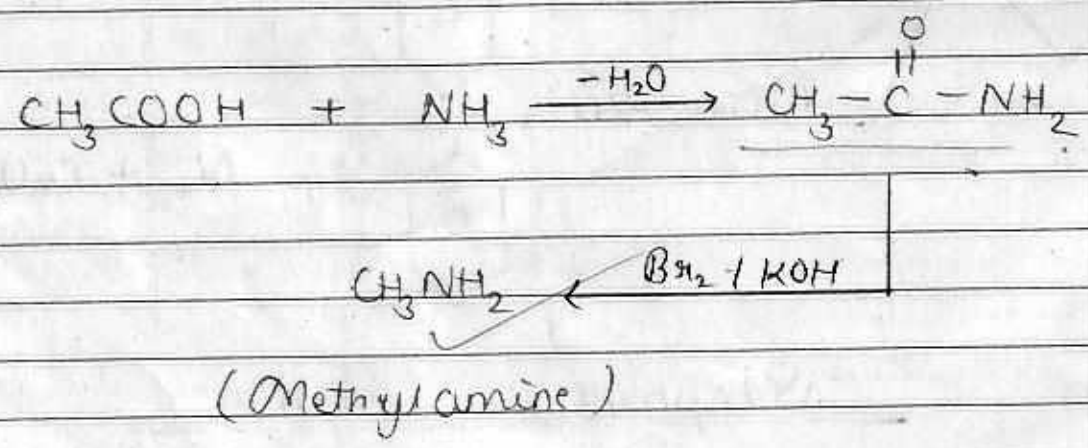 O
||
-H₂O
CH₃COOH + NH₃ ⟶ CH₃ - C - NH₂
CH₃NH₂ ⟵ Br₂ / KOH
(Methyl amine)